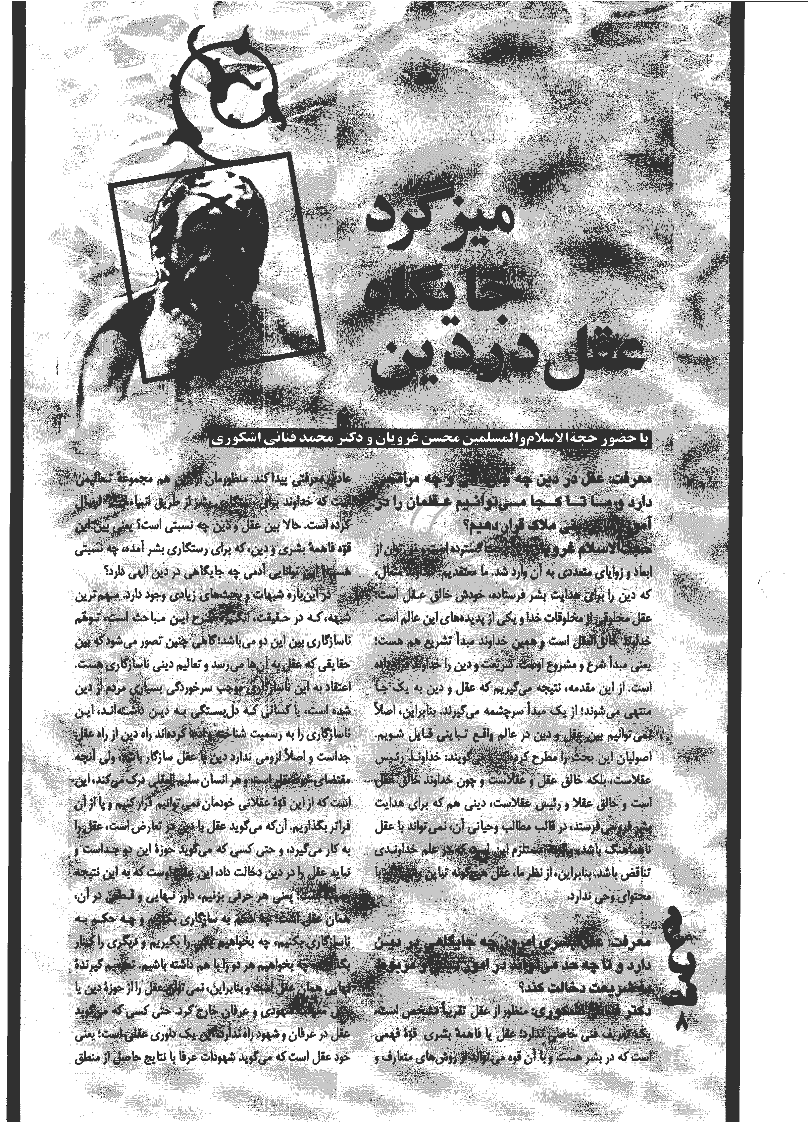 میزگرد
جایگاه
عقل در دین
با حضور حجة‌الاسلام‌والمسلمین محسن غرویان و دکتر محمد فنائی اشکوری
معرفت: عقل در دین چه جایگاهی و چه مراتبی
دارد و ما تا کجا می‌توانیم عقلمان را در
قرار دهیم؟
حجت‌الاسلام غرویان: گسترده است و می‌توان از
ابعاد و زوایای متعددی به آن وارد شد. ما معتقدیم خداوند متعال،
که دین را برای هدایت بشر فرستاده، خودش خالق عقل است؛
عقل مخلوقی از مخلوقات خدا و یکی از پدیده‌های این عالم است.
خداوند خالق عقل است و همین خداوند مبدأ تشریع هم هست؛
یعنی مبدأ شرع و مشروع اوست. شریعت و دین را خداوند
است. از این مقدمه، نتیجه می‌گیریم که عقل و دین به یک جا
منتهی می‌شوند؛ از یک مبدأ سرچشمه می‌گیرند. بنابراین، اصلاً
نمی‌توانیم بین عقل و دین در عالم واقع تباینی قایل شویم.
اصولیان این بحث را مطرح کرده‌اند می‌گویند: خداوند رئیس
عقلاست، بلکه خالق عقل و عقلاست و چون خداوند خالق عقل
است و خالق عقلا و رئیس عقلاست، دینی هم که برای هدایت
بشر فرو می‌فرستد، در قالب مطالب وحیانی آن، نمی‌تواند با عقل
ناهماهنگ باشد، مستلزم این است که در علم خداوندی
تناقض باشد. بنابراین، از نظر ما، عقل هیچ‌گونه تباینی با
محتوای وحی ندارد.
معرفت: عقل بشری امروز چه جایگاهی در دین
دارد و تا چه حد می‌تواند در امور
شریعت دخالت کند؟
دکتر فنائی اشکوری: منظور از عقل تقریباً مشخص است،
یک تعریف فنی خاصی ندارد؛ عقل یا فاهمۀ بشری قوۀ فهمی
است که در بشر هست و با آن قوه می‌تواند از روش‌های متعارف و
عادی معرفتی پیدا کند. منظورمان از دین هم مجموعۀ تعالیمی
است که خداوند برای رستگاری بشر از طریق انبیا ارسال
کرده است. حالا بین عقل و دین چه نسبتی است؟ یعنی بین این
قوۀ فاهمۀ بشری و دین، که برای رستگاری بشر آمده، چه نسبتی
هست؟ این توانایی آدمی چه جایگاهی در دین الهی دارد؟
در این‌باره شبهات و بحث‌های زیادی وجود دارد. مهم‌ترین
شبهه، که در حقیقت، انگیزۀ طرح این مباحث است، توهّم
ناسازگاری بین این دو می‌باشد؛ گاهی چنین تصور می‌شود که بین
حقایقی که عقل به آن‌ها می‌رسد و تعالیم دینی ناسازگاری هست.
اعتقاد به این ناسازگاری موجب سرخوردگی بسیاری مردم از دین
شده است، یا کسانی که دل‌بستگی به دین داشته‌اند، این
ناسازگاری را به رسمیت شناخته و ادعا کرده‌اند راه دین از راه عقل
جداست و اصلاً لزومی ندارد دین با عقل سازگار باشد. ولی آنچه
مقتضای خود عقل است و هر انسان سلیم العقلی درک می‌کند، این
است که از این قوۀ عقلانی خودمان نمی‌توانیم فرار کنیم و پا از آن
فراتر بگذاریم. آن‌که می‌گوید عقل با دین در تعارض است، عقل را
به کار می‌گیرد، و حتی کسی که می‌گوید حوزۀ این دو جداست و
نباید عقل را در دین دخالت داد، این عقل اوست که به این نتیجه
یعنی هر حرفی بزنیم، داور نهایی و قطعی در آن،
همان عقل است؛ چه حکم به سازگاری بکنیم و چه حکم به
ناسازگاری بکنیم، چه بخواهیم یکی را بگیریم و دیگری را کنار
بگذاریم، چه بخواهیم هر دو را با هم داشته باشیم. تصمیم گیرندۀ
نهایی همان عقل است و بنابراین، نمی‌توان عقل را از حوزۀ دین یا
شهودی و عرفان خارج کرد. حتی کسی که می‌گوید
عقل در عرفان و شهود راه ندارد، این یک داوری عقلی است؛ یعنی
خود عقل است که می‌گوید شهودات عرفا با نتایج حاصل از منطق
معرفت
۸